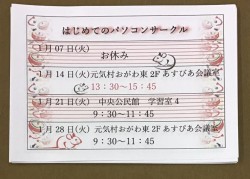 はじめてのパソコンサークル
1月07日(火)
お休み
1月14日(火) 元気村おがわ東 2F あすぴあ会議室
13:30～15:45
1月21日(火) 中央公民館 学習室4
9:30～11:45
1月28日(火) 元気村おがわ東 2F あすぴあ会議室
9:30～11:45